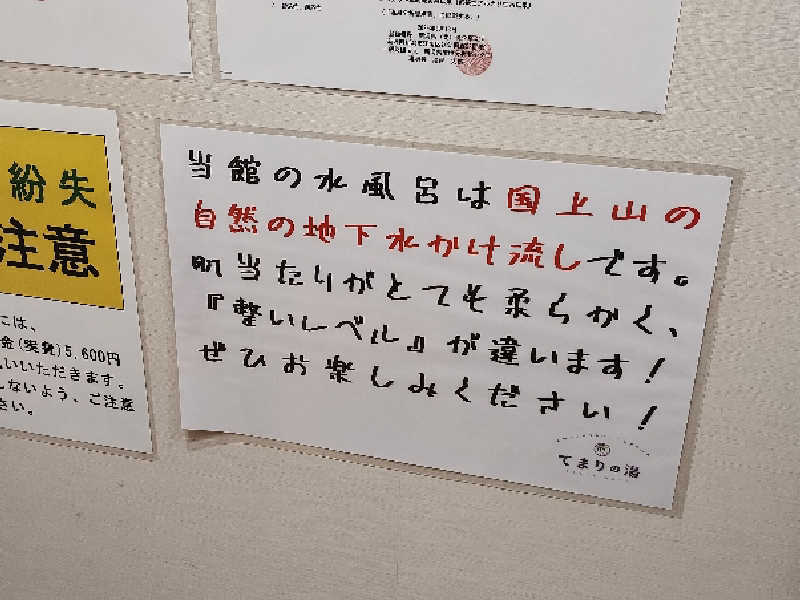 紛失
注意
には、
金(実費)5,600円
いいただきます。
しないよう、ご注意
さい。
当館の水風呂は国上山の
自然の地下水かけ流しです。
肌当たりがとても柔らかく、
『整いレベル』が違います!
ぜひお楽しみください!
てまりの湯